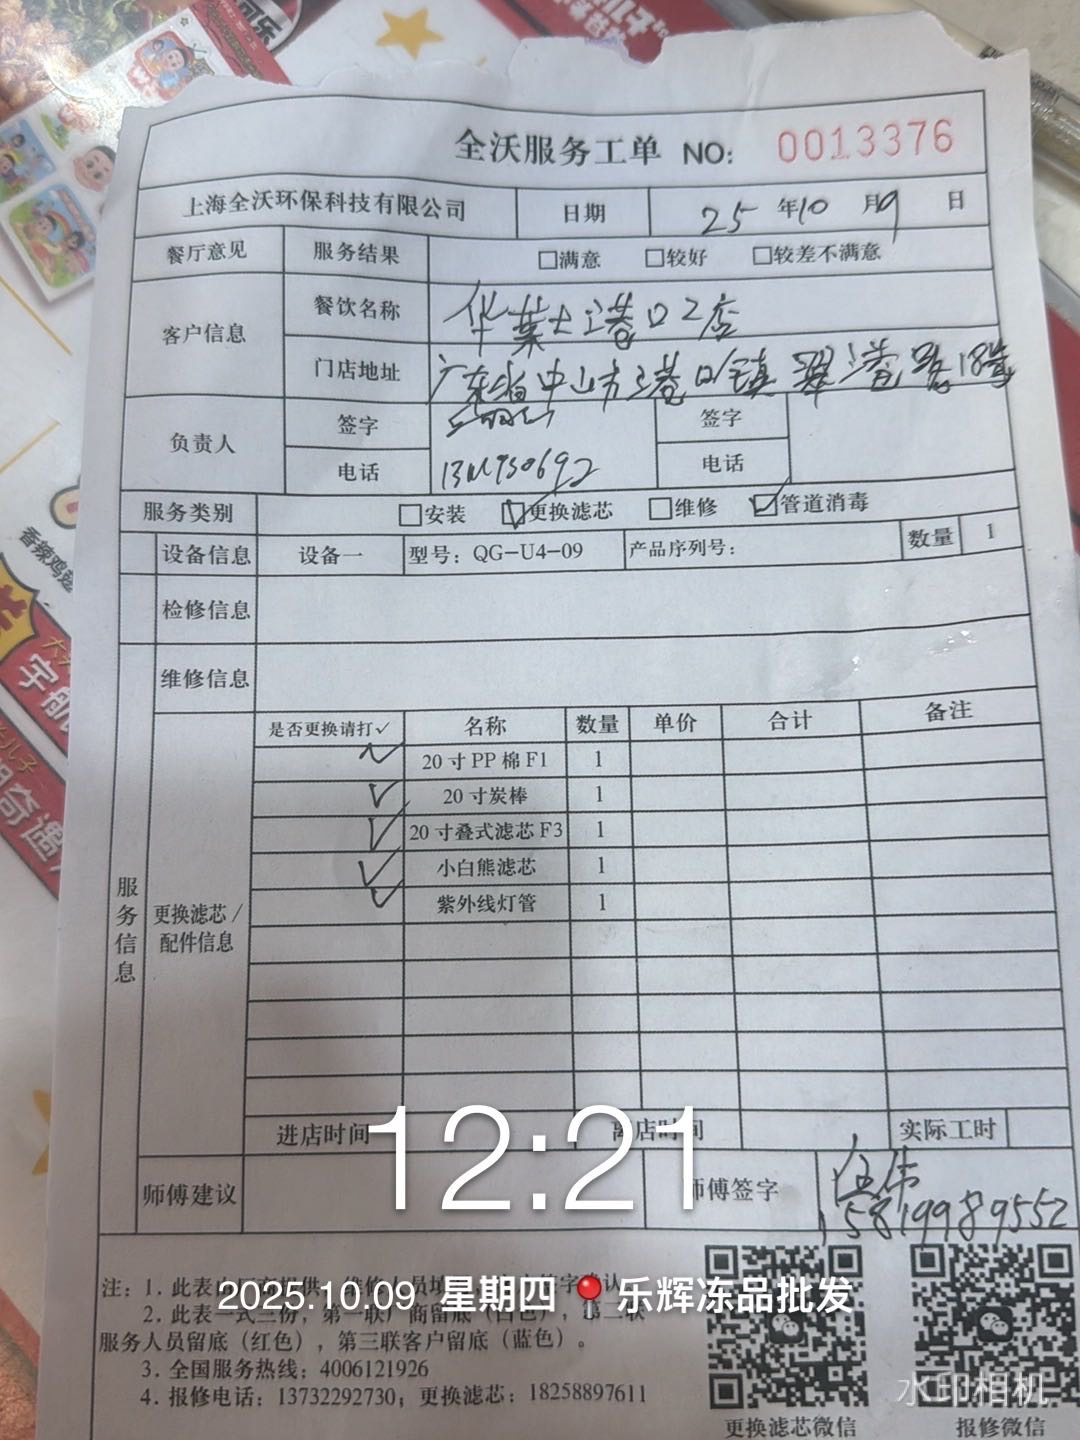 全沃服务工单 NO: 0013376
上海全沃环保科技有限公司 日期 25 年 10 月 9 日
餐厅意见 服务结果 □满意 □较好 □较差不满意
客户信息 餐饮名称 华莱士港口2店
门店地址 广东省中山市港口镇翠港路18号
负责人 签字 签字
电话 电话
服务类别 □安装 ☑更换滤芯 □维修 ☑管道消毒
设备信息 设备一 型号：QG-U4-09 产品序列号： 数量 1
检修信息
维修信息
服务信息
更换滤芯/配件信息
是否更换请打✓ 名称 数量 单价 合计 备注
✓ 20寸PP棉F1 1
✓ 20寸炭棒 1
✓ 20寸叠式滤芯F3 1
✓ 小白熊滤芯 1
✓ 紫外线灯管 1
进店时间 离店时间 实际工时
12:21
师傅建议 师傅签字
15819989552
注：1. 此表
2025.10.09 星期四 乐辉冻品批发
2. 此表一式三份，第一联厂商留底（白色），第二联
服务人员留底（红色），第三联客户留底（蓝色）。
3. 全国服务热线：4006121926
4. 报修电话：13732292730；更换滤芯：18258897611
更换滤芯微信 报修微信
水印相机
香辣鸡翅
宇航
奇遇